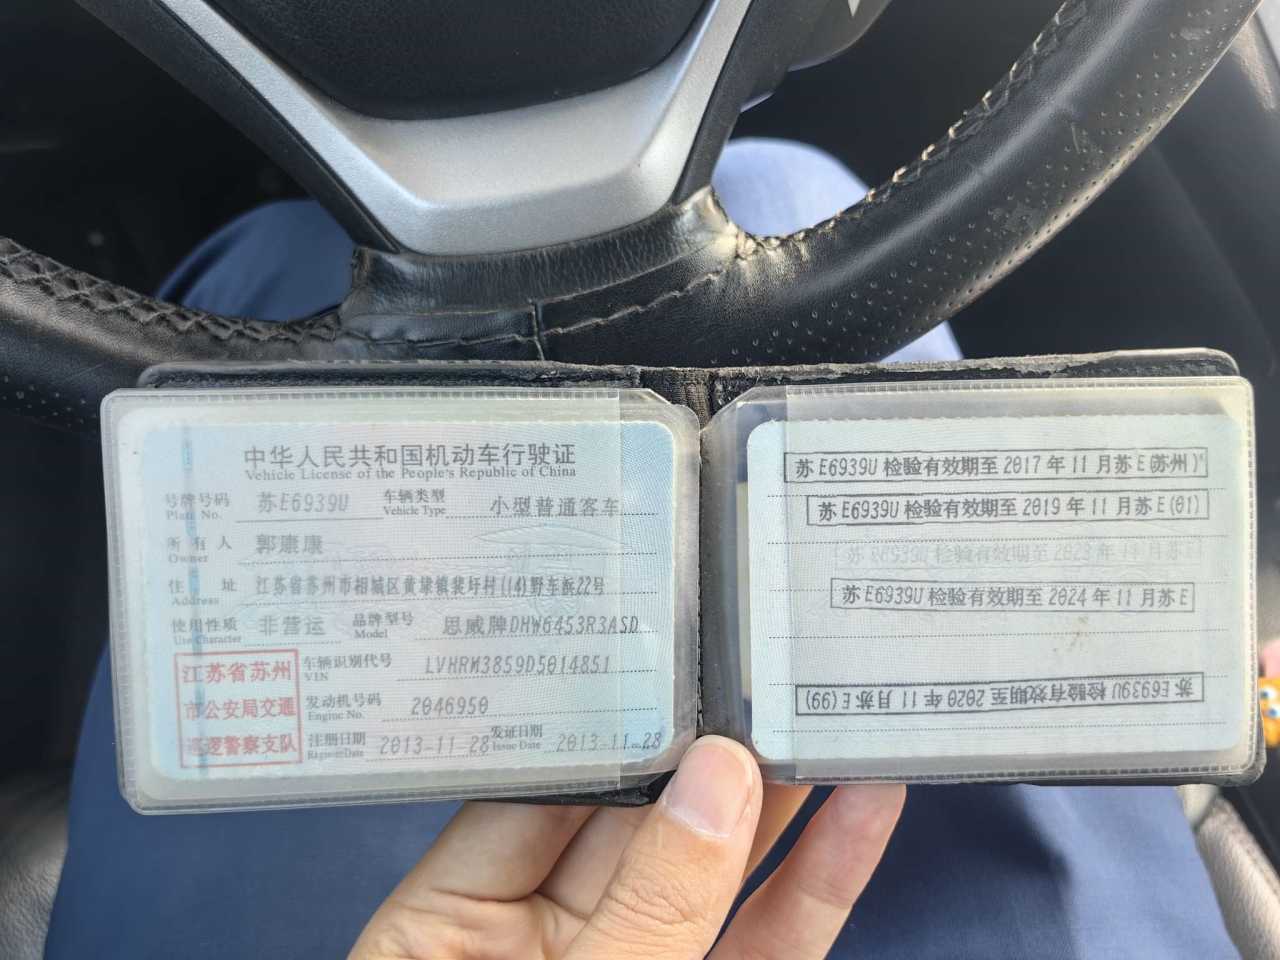 中华人民共和国机动车行驶证
Vehicle License of the People's Republic of China
号牌号码 苏E6939U 车辆类型 小型普通客车
Plate No. Vehicle Type
所有人 郭康康
Owner
住址 江苏省苏州市相城区黄埭镇裴圩村(14)野车浜22号
Address
使用性质 非营运 品牌型号 思威牌DHW6453R3ASD
Use Character Model
江苏省苏州
市公安局交通
巡逻警察支队
车辆识别代号 LVHRM3859D5014851
VIN
发动机号码 2046950
Engine No.
注册日期 2013-11-28 发证日期 2013-11-28
Register Date Issue Date
苏E6939U检验有效期至2017年11月苏E(苏州)
苏E6939U检验有效期至2019年11月苏E(01)
苏E6939U检验有效期至2023年11月苏E
苏E6939U检验有效期至2024年11月苏E
苏E6939U检验有效期至2020年11月苏E(99)